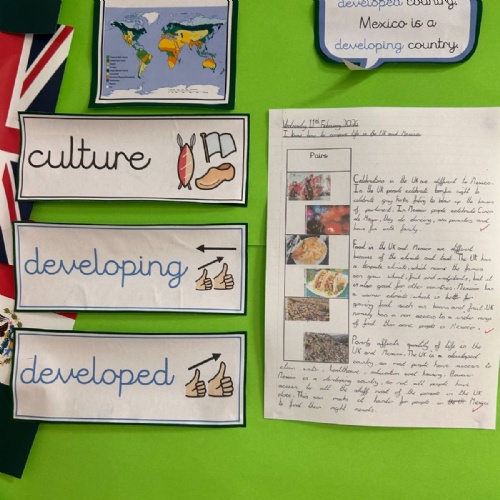 developed country.
Mexico is a
developing country.
culture
developing
developed
Wednesday 11th February 2026
I know how to compare life in the UK and Mexico
Pairs
Celebrations in the UK are different to Mexico.
In the UK people celebrate bonfire night to
celebrate guy fawkes failing to blow up the houses
of parliament. In Mexico people celebrate Cinco
de Mayo, they do dancing, see parades and
have fun with family.
Food in the UK and Mexico are different
because of the climate and land. The UK has
a climate which means the farmers
can grow wheat, fruit and vegetables, but it
is also good for other countries. Mexico has
a warmer climate which is better for
growing food such as beans and fruit. UK
have access to a wider range
of food than some people in Mexico.
Poverty affects quality of life in the
UK and Mexico. The UK is a developed
country so most people have access to
clean water, healthcare, education and housing. However
Mexico is a developing country, so not all people have
access to all the stuff most of the people in the UK
does. This can make it harder for people in Mexico
to find their right needs.